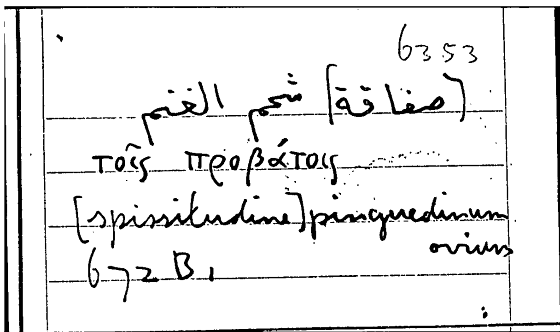 6353
(صفاقة) شحم الغنم
τοῖς προβάτοις
[spissitudine] pinguedinum
ovium
672 B,